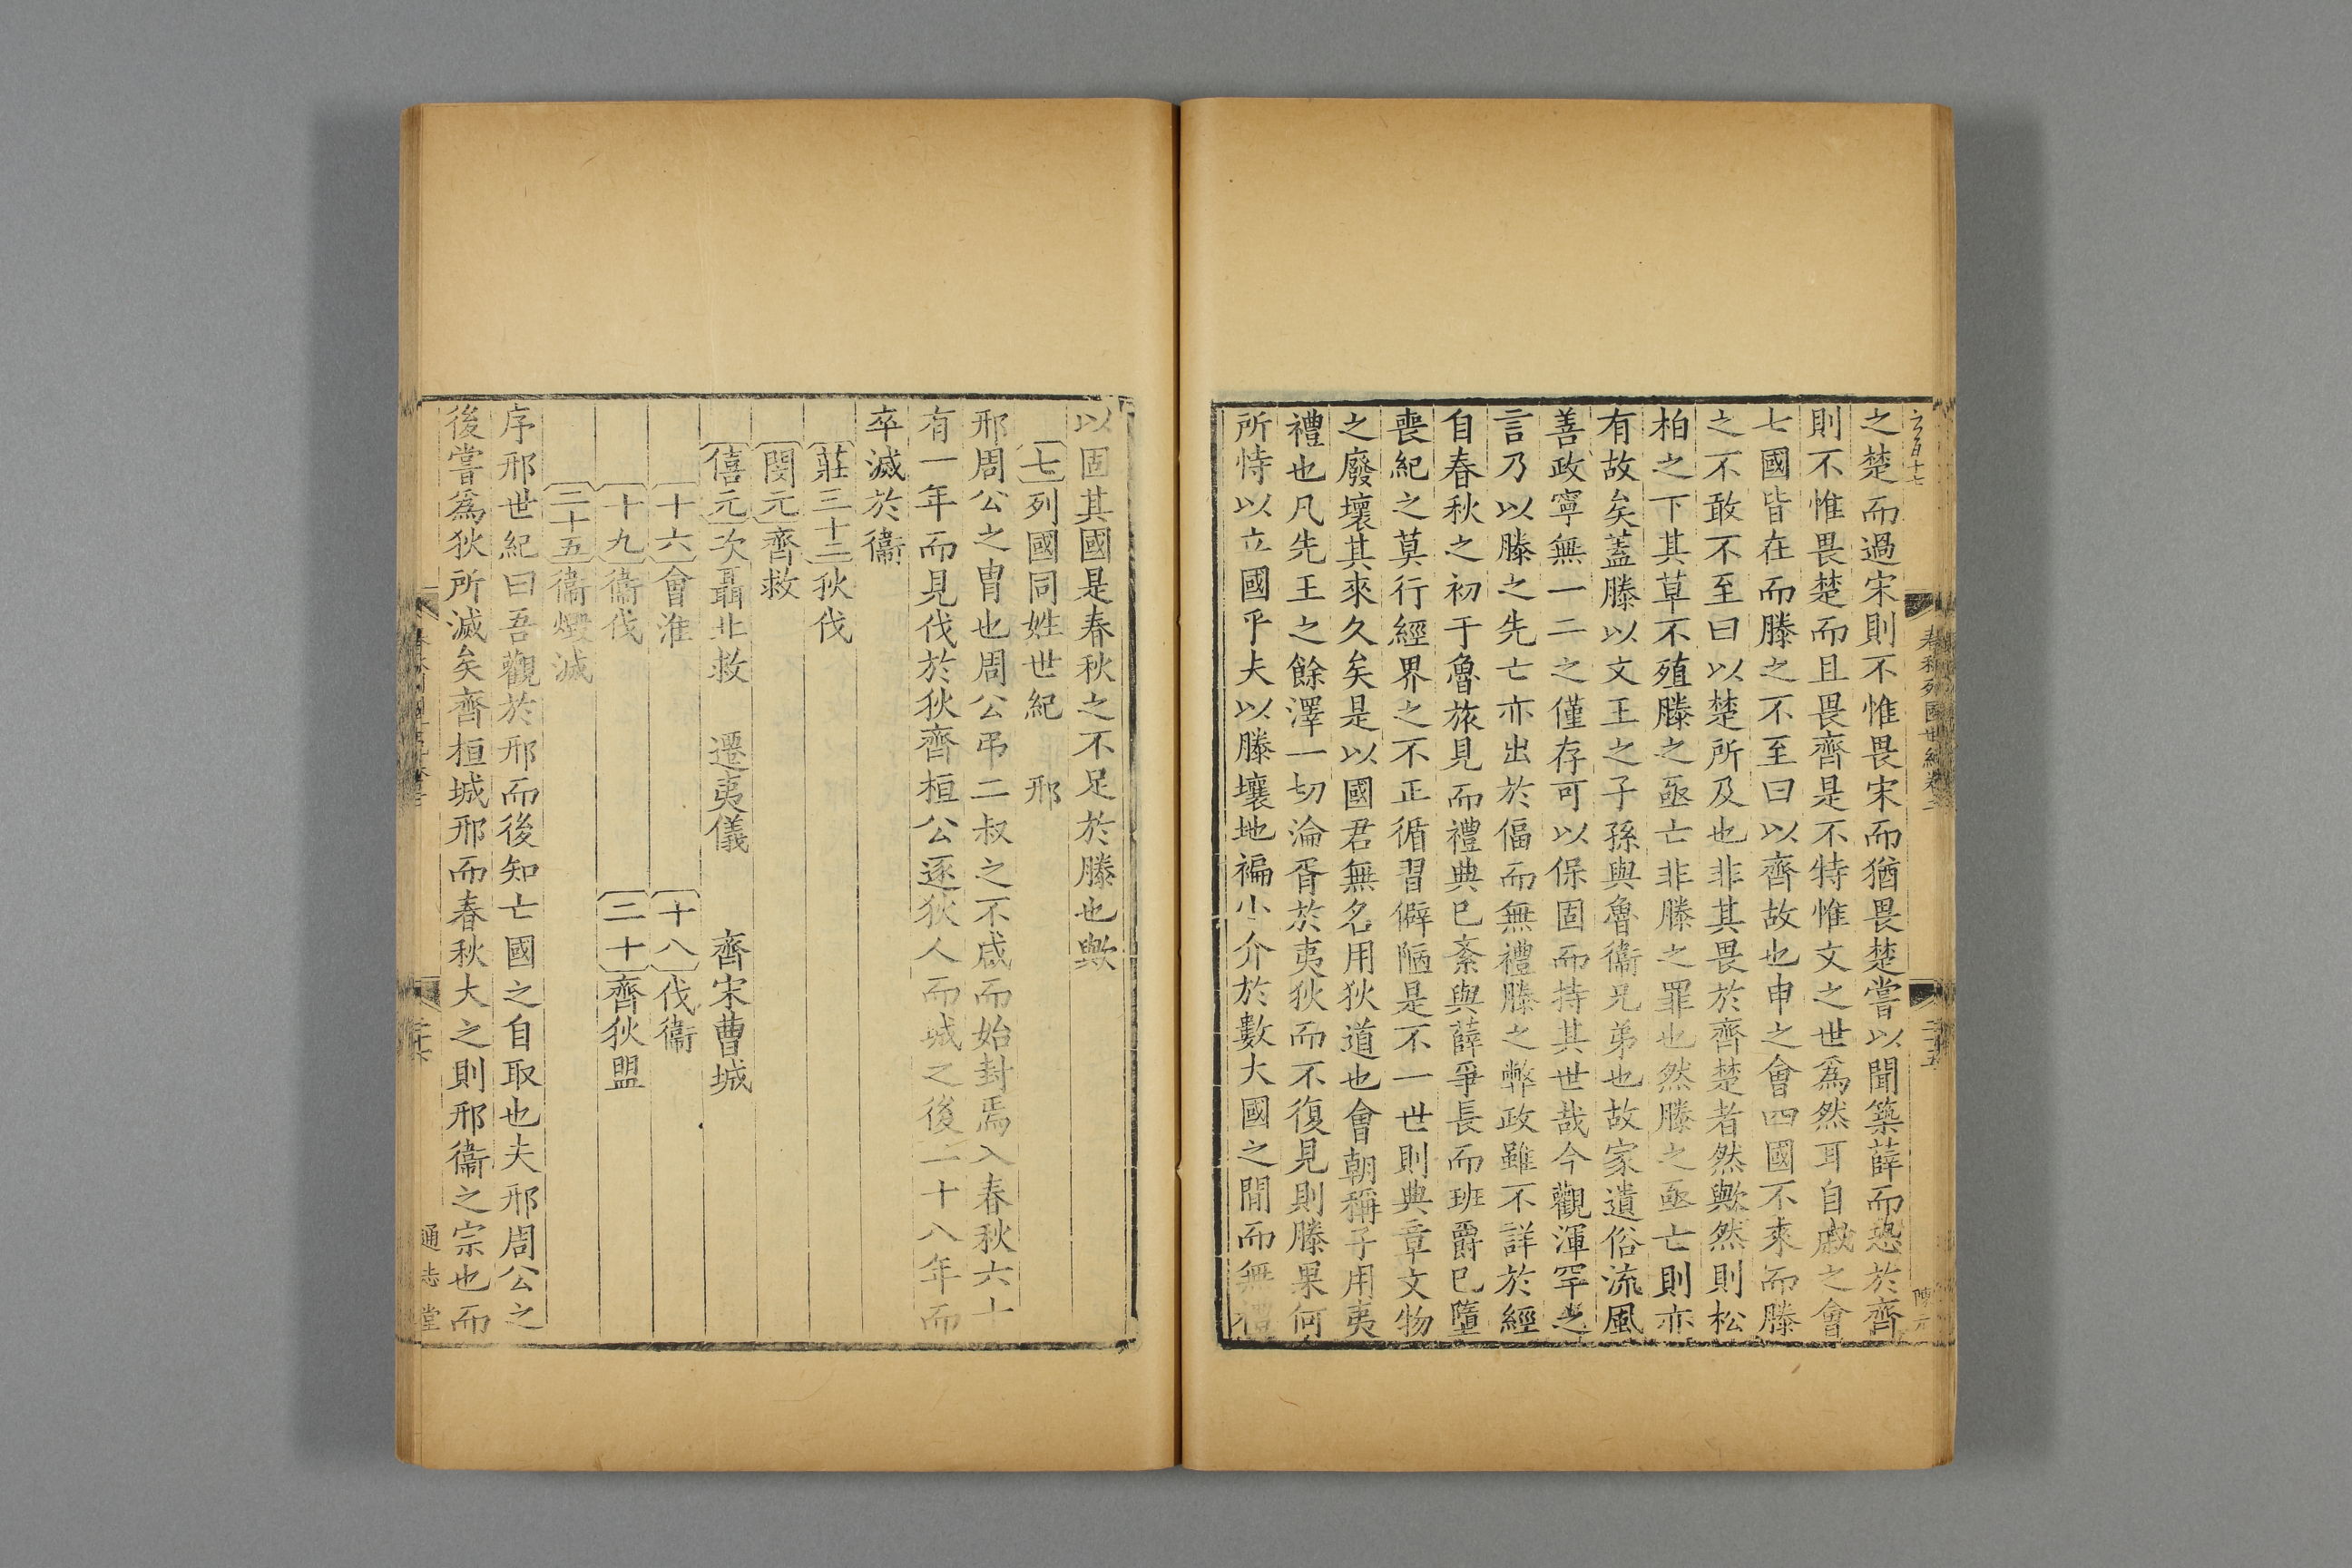 之楚而過宋則不惟畏宋而猶畏楚嘗以聞築薛而恐於齊
則不惟畏楚而且畏齊是不特惟文之世爲然耳自戲之會
七國皆在而滕之不至曰以齊故也申之會四國不來而滕
之不敢不至曰以楚所及也非其畏於齊楚者然歟然則松
柏之下其草不殖滕之亟亡非滕之罪也然滕之亟亡則亦
有故矣蓋滕以文王之子孫與魯衞兄弟也故家遺俗流風
善政寧無一二之僅存可以保固而持其世哉今觀渾罕之
言乃以滕之先亡亦出於偪而無禮滕之弊政雖不詳於經
自春秋之初于魯旅見而禮典已紊與薛爭長而班爵已墮
喪紀之莫行經界之不正循習僻陋是不一世則典章文物
之廢壞其來久矣是以國君無名用狄道也會朝稱子用夷
禮也凡先王之餘澤一切淪胥於夷狄而不復見則滕果何
所恃以立國乎夫以滕壤地褊小介於數大國之間而無禮
以固其國是春秋之不足於滕也歟
七列國同姓世紀 邢
邢周公之胄也周公弔二叔之不咸而始封焉入春秋六十
有一年而見伐於狄齊桓公逐狄人而城之後二十八年而
卒滅於衞
莊三十二狄伐
閔元齊救
僖元次聶北救 遷夷儀 齊宋曹城
十六會淮 十八伐衞
十九衞伐 二十齊狄盟
二十五衞燬滅
序邢世紀曰吾觀於邢而後知亡國之自取也夫邢周公之
後嘗爲狄所滅矣齊桓城邢而春秋大之則邢衞之宗也而
通志堂